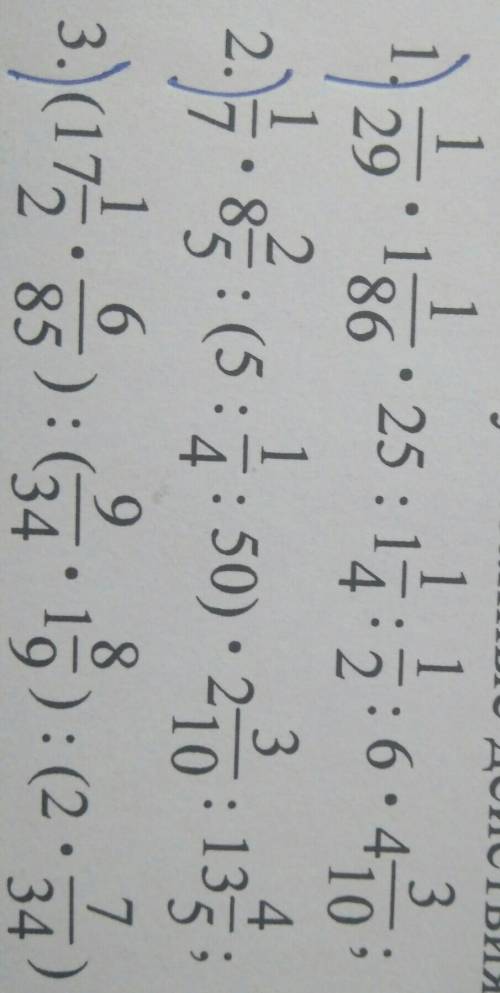 действия
1.) 1/29 · 1 1/86 · 25 : 1 1/4 : 1/2 : 6 · 4 3/10;
2.) 1/7 · 8 2/5 : (5 : 1/4 : 50) · 2 3/10 : 13 4/5;
3.) (17 1/2 · 6/85) : (9/34 · 1 8/9) : (2 · 7/34)